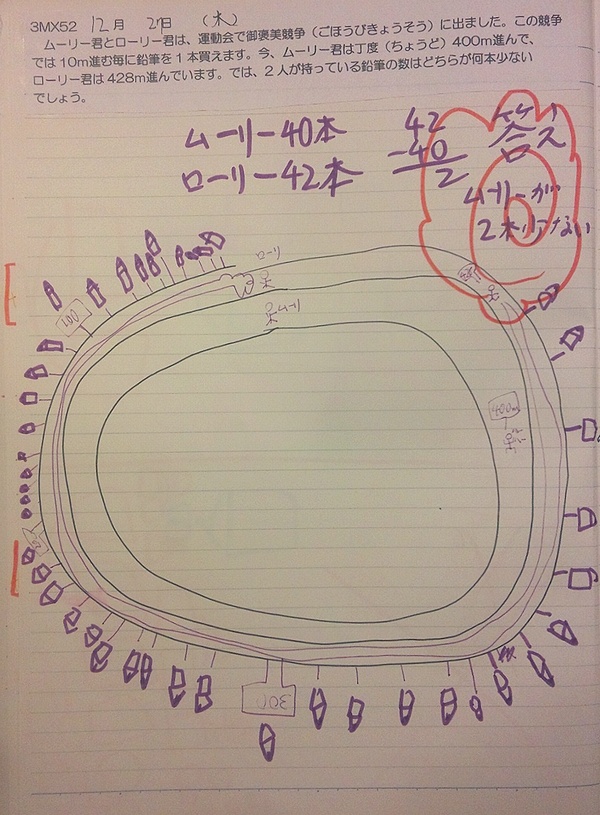 3MX52 12月 27日 (木)
ムーリー君とローリー君は、運動会で御褒美競争(ごほうびきょうそう)に出ました。この競争
では10m進む毎に鉛筆を1本買えます。今、ムーリー君は丁度(ちょうど)400m進んで、
ローリー君は428m進んでいます。では、2人が持っている鉛筆の数はどちらが何本少ない
でしょう。
ムーリー40本
ローリー42本
42
-40
2
答え
ムーリーが
2本少ない
ローリ
ムーリ
100
400m
300